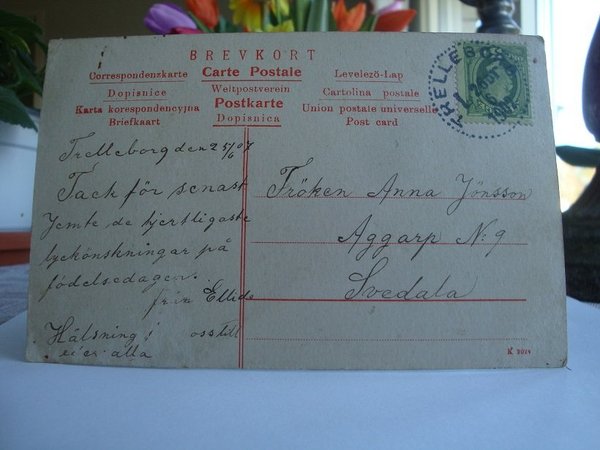 BREVKORT
Correspondenzkarte Carte Postale Levelező-Lap
Dopisnice Weltpostverein Cartolina postale
Karta korespondencyjna Postkarte Union postale universelle
Briefkaart Dopisnica Post card
TRELLEBORG
Trelleborg den 25/6 07
Tack för senast
Jemte de hjertligaste
lyckönskningar på
födelsedagen.
från Ellida
Hälsning! oss till
er alla
Fröken Anna Jönsson
Aggarp N:9
Svedala
K 2024